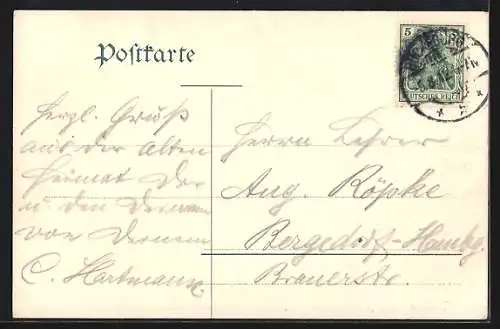 Postkarte
5
DEUTSCHES REICH
Herzl. Gruß
aus der alten
Heimat Dir
u. den Deinen
von Deinem
C. Hartmann
Herrn Lehrer
Aug. Röpke
Bergedorf-Hambg.
Brauerstr.